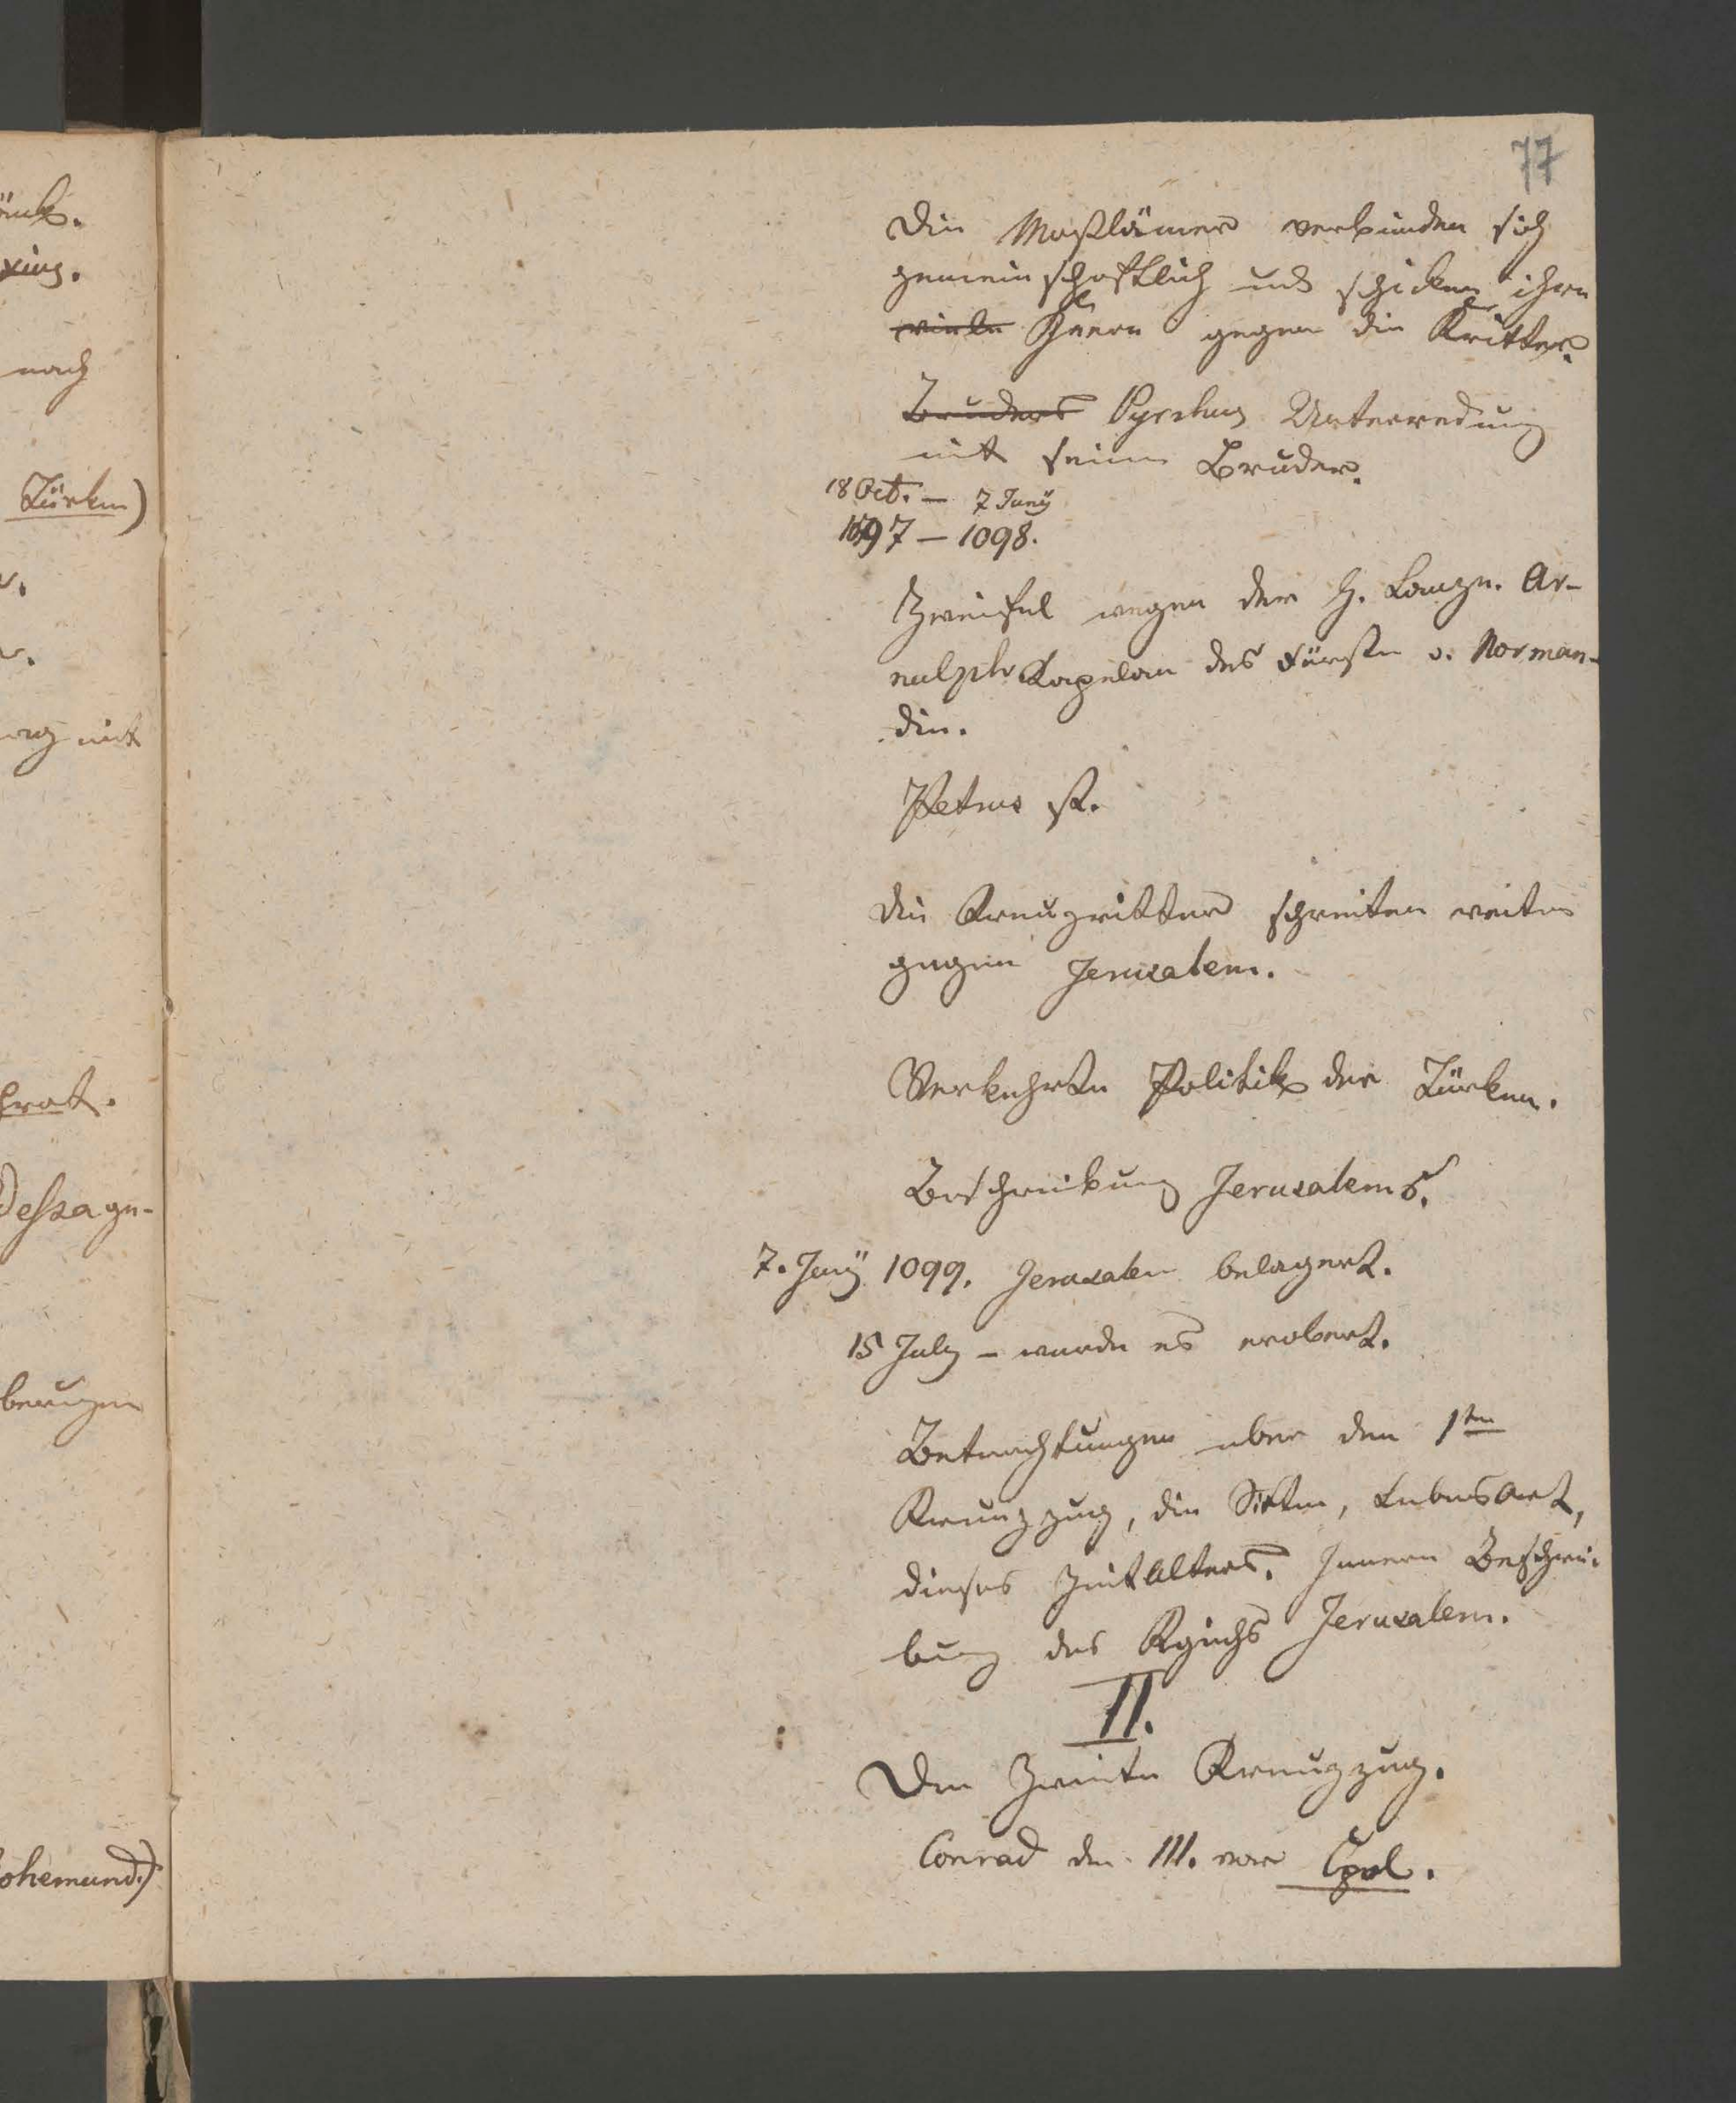 77
Die Moßlämer verbinden sich
gemeinschaftlich und schicken ihre
viele Heere gegen die Kritter.
Bruders Pyrrhus Unterredung
mit seinem Bruder.
18 Oct. – 7 Juny
1097 – 1098.
Zweifel wegen der H. Lanze. Ar-
nulph Kapelan des Fürsten v. Norman-
die.
Petrus st.
Die Kreuzritter schreiten weiter
gegen Jerusalem.
Verkehrte Politik der Türken.
Beschreibung Jerusalems.
7. Juny 1099. Jerusalem belagert.
15 July – wurde es erobert.
Betrachtungen über den 1ten
Kreuzzug, die Sitten, Lebensart,
dieses Zeitalters. Innere Beschrei-
bung des Kgrichs Jerusalem.
II.
Der Zweite Kreuzzug.
Conrad der III. vor Cpol.
nach
Türken)
mit
ohemund.)